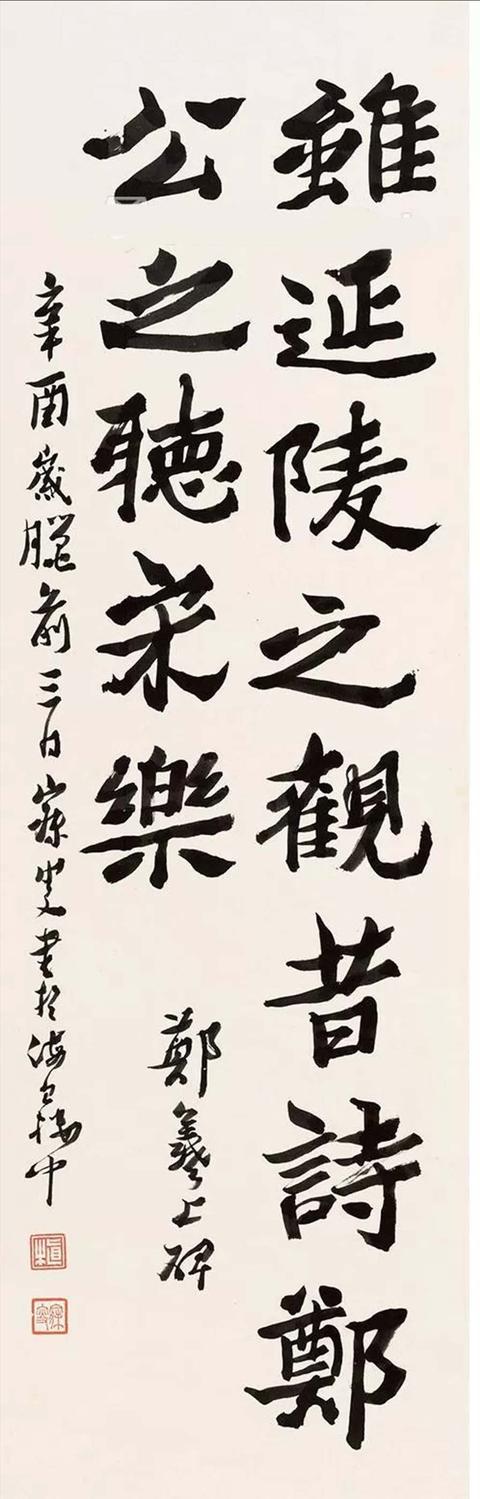 雖延陵之觀昔詩鄭
公之聽宋樂
鄭羲上碑
辛酉歲臘前三日寐叟書於海日樓中